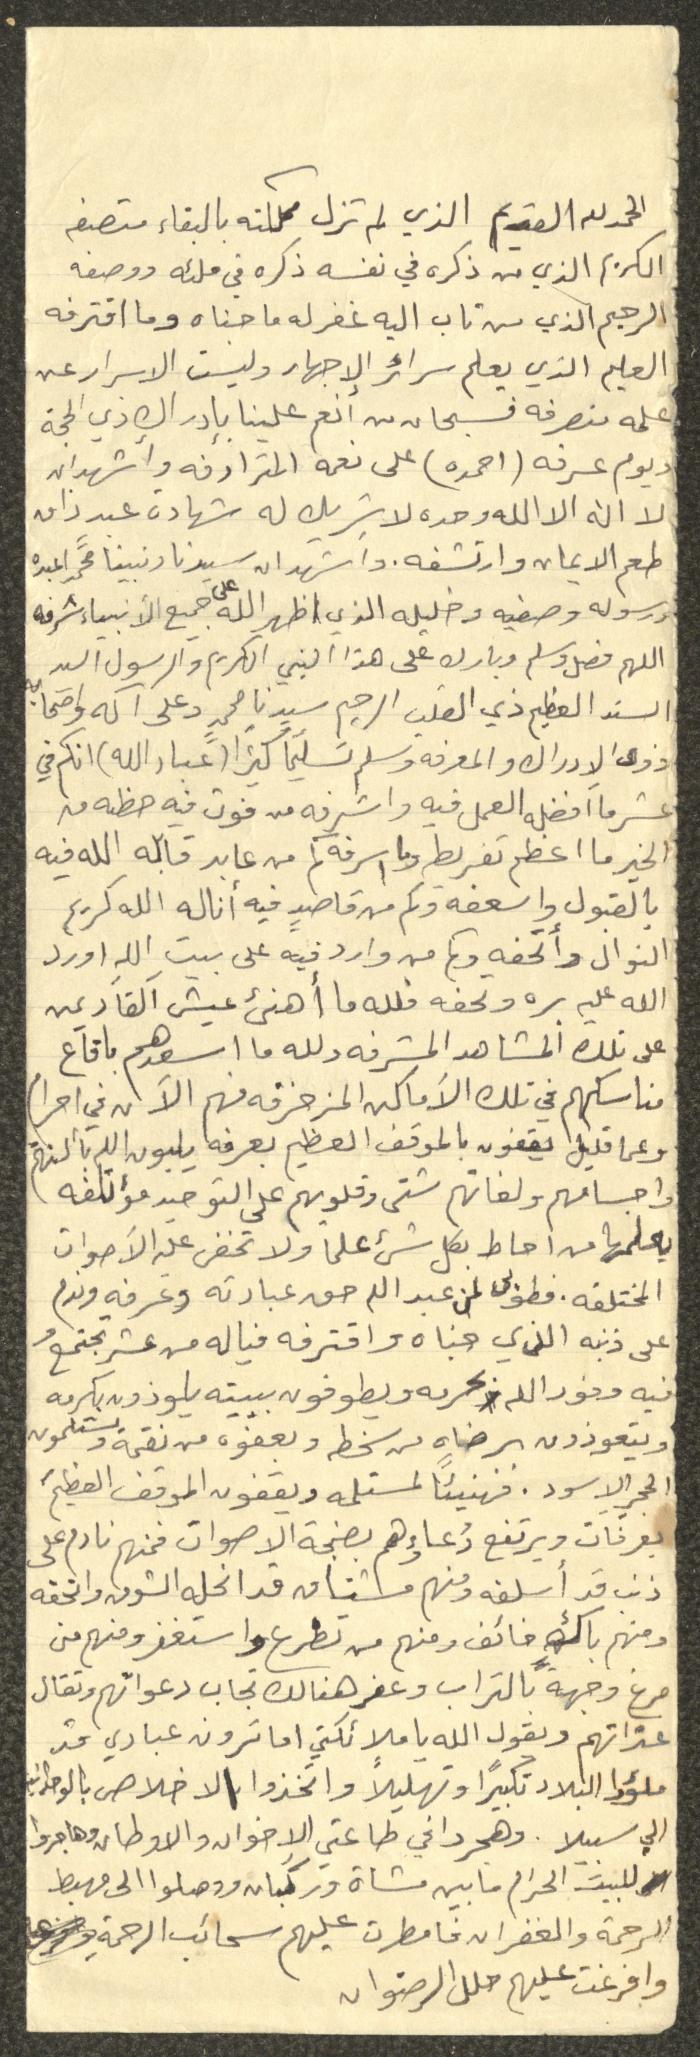 الحمد لله القديم الذي لم تزل مملكته بالبقاء متصفه
الكريم الذي من ذكره في نفسه ذكره في ملئه ووصفه
الرحيم الذي من تاب اليه غفر له ما جناه وما اقترفه
العليم الذي يعلم سرائر الإجهار وليست الاسرار عن
علمه منصرفه فسبحان من أنعم علينا بإدراك ذي الحجة
ويوم عرفه (احمده) على نعمه المترادفه وأشهد ان
لا اله الا الله وحده لا شريك له شهادة عبد ذاق
طعم الايمان وارتشفه. واشهد ان سيدنا ونبينا محمدا عبده
ورسوله وصفيه وخليله الذي اظهر الله على جميع الأنبياء شرفه
اللهم فصل وسلم وبارك على هذا النبي الكريم والرسول السيد
السند العظيم ذي القلب الرحيم سيدنا محمدٍ وعلى آله واصحابه
ذوى الإدراك والمعرفه وسلم تسليمًا كثيرًا (عباد الله) انكم في
عشر ما افضل العمل فيه واشرفه من فوت فيه حظه من
الخير ما اعظم تفريطه وما اسرفه كم من عابد قابله الله فيه
بالقبول واسعفه وكم من قاصدٍ فيه أناله الله كريم
النوال وأتحفه وكم من وارد فيه على بيت الله اورد
الله عليه بره وتحفه فلله ما أهنئ عيش القادمين
على تلك المشاهد المشرفه ولله ما اسعدهم بإقاع
مناسكهم في تلك الأماكن المزخرفه فهم الآن في احرام
وعما قليل يقفون بالموقف العظيم بعرفه يلبون الله بألسنتهم
واجسامهم ولغاتهم شتى وقلوبهم على التوحيد مؤتلفه
يعلمها من احاط بكل شئ علما ولا تخفى عليه الأصوات
المختلفه. فطوبى لمن عبد الله حق عبادته وعرفه وندم
على ذنبه الذي جناه واقترفه فياله من عشر تجتمع
فيه وفود الله بحرمه ويطوفون ببيته يلوذون بكرمه
ويتعوذون برضاه من سخطه وبعفوه من نقمه ويستلمون
الحجر الاسود. فهنيئًا لمستلمه ويقفون الموقف العظيم
بعرفات ويرتفع دُعاؤهم بضجة الاصوات فمنهم نادم على
ذنب قد أسلفه ومنهم مشتاق قد انحله الشوق واتحفه
ومنهم باك خائف ومنهم من تضرع واستغفر ومنهم من
مرغ وجهه بالتراب وعفر هنالك تجاب دعواتهم وتقال
عثراتهم ويقول الله يا ملائكتي اما ترون عبادي قد
ملؤا البلاد تكبيرًا وتهليلاً واتخذوا بالاخلاص بالوحدانية
الي سبيلا. وهجروا في طاعتي الإخوان والاوطان وهاجروا
للبيت الحرام ما بين مشاة وركبان ووصلوا الى مهبط
الرحمة والغفران فامطرت عليهم سحائب الرحمة
وافرغت عليهم حلل الرضوان